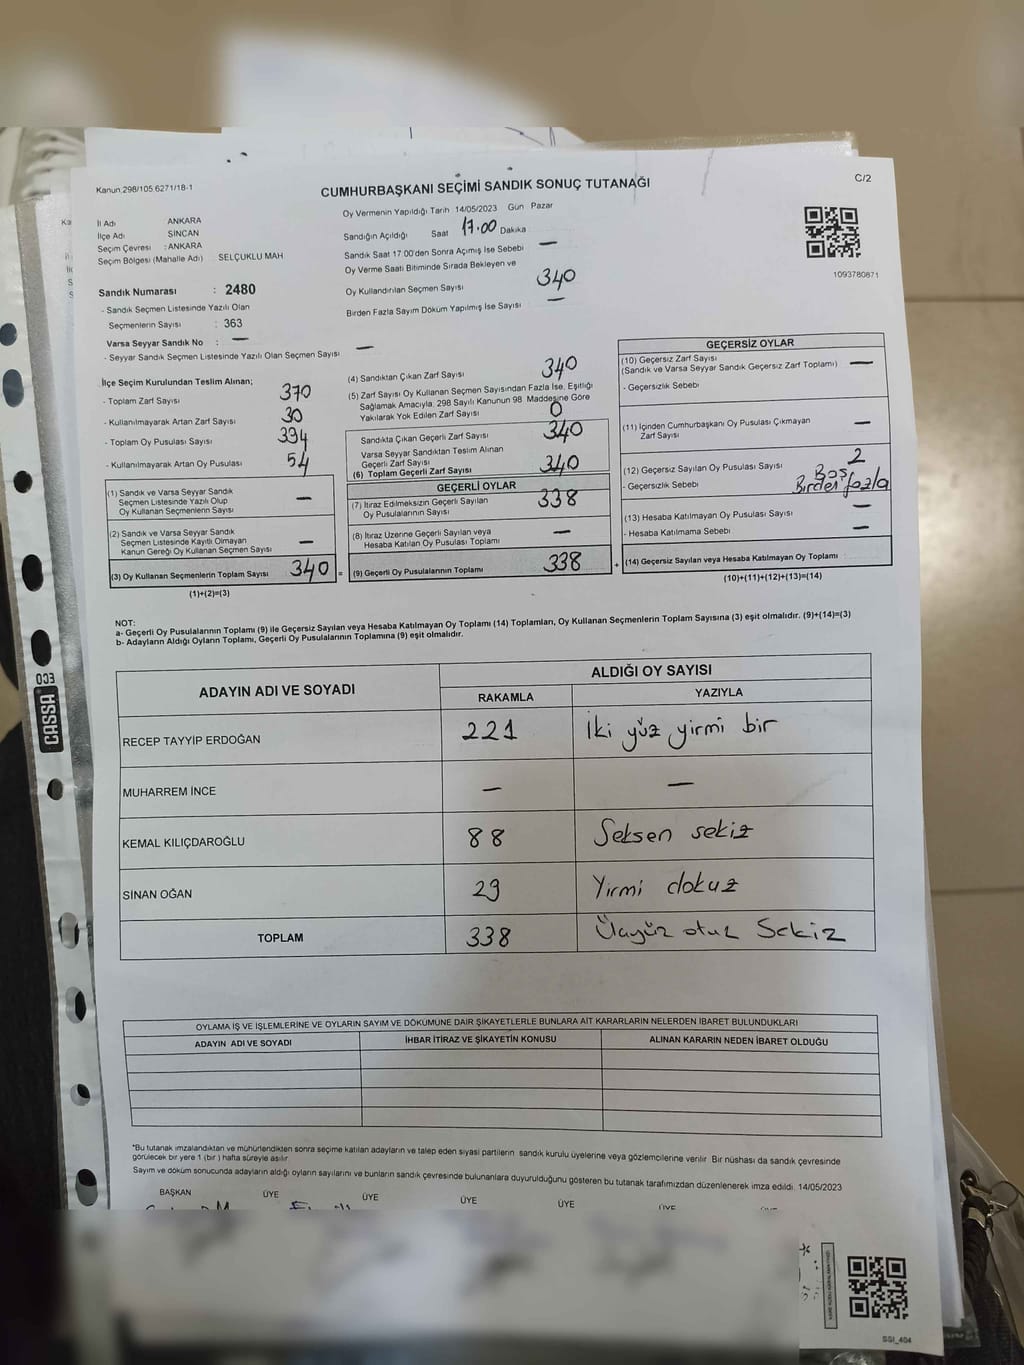 Kanun:298/105 6271/18-1
CUMHURBAŞKANI SEÇİMİ SANDIK SONUÇ TUTANAĞI
C/2
İl Adı ANKARA
İlçe Adı SİNCAN
Seçim Çevresi : ANKARA
Seçim Bölgesi (Mahalle Adı) : SELÇUKLU MAH
Sandık Numarası : 2480
- Sandık Seçmen Listesinde Yazılı Olan
Seçmenlerin Sayısı : 363
Varsa Seyyar Sandık No : —
- Seyyar Sandık Seçmen Listesinde Yazılı Olan Seçmen Sayısı —
Oy Vermenin Yapıldığı Tarih 14/05/2023 Gün Pazar
Sandığın Açıldığı Saat 17.00 Dakika
Sandık Saat 17:00'den Sonra Açımış İse Sebebi —
Oy Verme Saati Bitiminde Sırada Bekleyen ve
Oy Kullandırılan Seçmen Sayısı 340
Birden Fazla Sayım Döküm Yapılmış İse Sayısı —
1093780871
İlçe Seçim Kurulundan Teslim Alınan;
- Toplam Zarf Sayısı 370
- Kullanılmayarak Artan Zarf Sayısı 30
- Toplam Oy Pusulası Sayısı 394
- Kullanılmayarak Artan Oy Pusulası 54
(1) Sandık ve Varsa Seyyar Sandık
Seçmen Listesinde Yazılı Olup
Oy Kullanan Seçmenlerin Sayısı —
(2) Sandık ve Varsa Seyyar Sandık
Seçmen Listesinde Kayıtlı Olmayan
Kanun Gereği Oy Kullanan Seçmen Sayısı —
(3) Oy Kullanan Seçmenlerin Toplam Sayısı 340 =
(1)+(2)=(3)
(4) Sandıktan Çıkan Zarf Sayısı 340
(5) Zarf Sayısı Oy Kullanan Seçmen Sayısından Fazla İse, Eşitliği
Sağlamak Amacıyla, 298 Sayılı Kanunun 98. Maddesine Göre
Yakılarak Yok Edilen Zarf Sayısı 0
Sandıkta Çıkan Geçerli Zarf Sayısı 340
Varsa Seyyar Sandıktan Teslim Alınan
Geçerli Zarf Sayısı
(6) Toplam Geçerli Zarf Sayısı 340
GEÇERLİ OYLAR
(7) İtiraz Edilmeksizin Geçerli Sayılan
Oy Pusulalarının Sayısı 338
(8) İtiraz Üzerine Geçerli Sayılan veya
Hesaba Katılan Oy Pusulası Toplamı —
(9) Geçerli Oy Pusulalarının Toplamı 338 +
GEÇERSİZ OYLAR
(10) Geçersiz Zarf Sayısı
(Sandık ve Varsa Seyyar Sandık Geçersiz Zarf Toplamı) —
- Geçersizlik Sebebi
(11) İçinden Cumhurbaşkanı Oy Pusulası Çıkmayan
Zarf Sayısı —
(12) Geçersiz Sayılan Oy Pusulası Sayısı 2
- Geçersizlik Sebebi Boş
Birden fazla
(13) Hesaba Katılmayan Oy Pusulası Sayısı —
- Hesaba Katılmama Sebebi —
(14) Geçersiz Sayılan veya Hesaba Katılmayan Oy Toplamı
(10)+(11)+(12)+(13)=(14)
NOT:
a- Geçerli Oy Pusulalarının Toplamı (9) ile Geçersiz Sayılan veya Hesaba Katılmayan Oy Toplamı (14) Toplamları, Oy Kullanan Seçmenlerin Toplam Sayısına (3) eşit olmalıdır. (9)+(14)=(3)
b- Adayların Aldığı Oyların Toplamı, Geçerli Oy Pusulalarının Toplamına (9) eşit olmalıdır.
ADAYIN ADI VE SOYADI
ALDIĞI OY SAYISI
RAKAMLA YAZIYLA
RECEP TAYYİP ERDOĞAN 221 İki yüz yirmi bir
MUHARREM İNCE — —
KEMAL KILIÇDAROĞLU 88 Seksen sekiz
SİNAN OĞAN 29 Yirmi dokuz
TOPLAM 338 Üçyüz otuz Sekiz
OYLAMA İŞ VE İŞLEMLERİNE VE OYLARIN SAYIM VE DÖKÜMÜNE DAİR ŞİKAYETLERLE BUNLARA AİT KARARLARIN NELERDEN İBARET BULUNDUKLARI
ADAYIN ADI VE SOYADI İHBAR İTİRAZ VE ŞİKAYETİN KONUSU ALINAN KARARIN NEDEN İBARET OLDUĞU
*Bu tutanak imzalandıktan ve mühürlendikten sonra seçime katılan adayların ve talep eden siyasi partilerin sandık kurulu üyelerine veya gözlemcilerine verilir. Bir nüshası da sandık çevresinde
görülecek bir yere 1 (bir) hafta süreyle asılır.
Sayım ve döküm sonucunda adayların aldığı oyların sayılarını ve bunların sandık çevresinde bulunanlara duyurulduğunu gösteren bu tutanak tarafımızdan düzenlenerek imza edildi. 14/05/2023
BAŞKAN ÜYE ÜYE ÜYE ÜYE ÜYE
CASSA 003
SGI_404